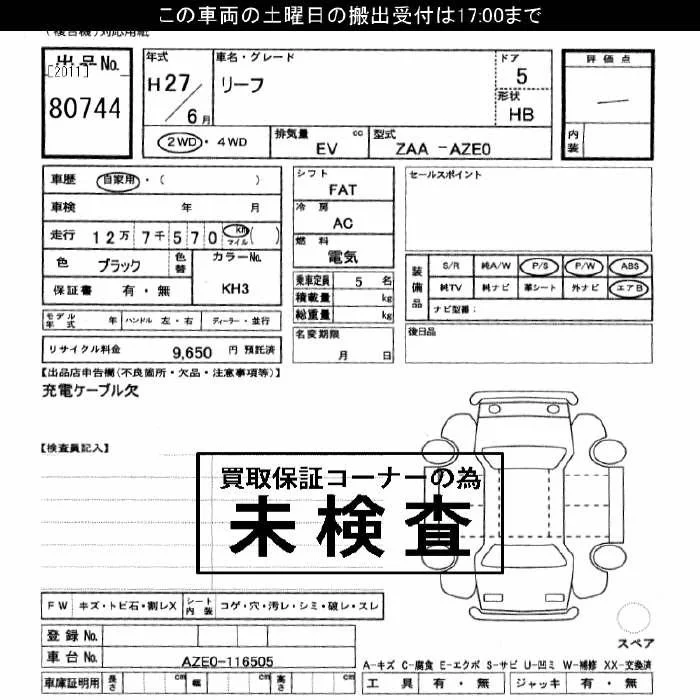 この車両の土曜日の搬出受付は17:00まで
出品No.
[2011]
80744
年式
H27/6月
車名・グレード
リーフ
ドア
5
形状
HB
評価点
―
内装
2WD・4WD
排気量 cc
EV
型式
ZAA -AZE0
車歴 自家用・( )
車検 年 月
走行 12万7千570 km マイル ( )
色 ブラック
色替
カラーNo.
KH3
保証書 有・無
モデル年式 年 ハンドル 左・右 ディーラー・並行
リサイクル料金 9,650 円 預託済
シフト
FAT
冷房
AC
燃料
電気
乗車定員 5 名
積載量 kg
総重量 kg
名変期限
月 日
セールスポイント
装備品
S/R 純A/W P/S P/W ABS
純TV 純ナビ 革シート 外ナビ エアB
ナビ型番:
後日品
【出品店申告欄(不良箇所・欠品・注意事項等)】
充電ケーブル欠
【検査員記入】
買取保証コーナーの為
未検査
FW キズ・トビ石・割レX シート内装 コゲ・穴・汚レ・シミ・破レ・スレ
登録No.
車台No. AZE0-116505
車庫証明用 長さ cm 幅 cm 高さ cm
スペア
A-キズ C-腐食 E-エクボ S-サビ U-凹ミ W-補修 XX-交換済
工具 有・無 ジャッキ 有・無